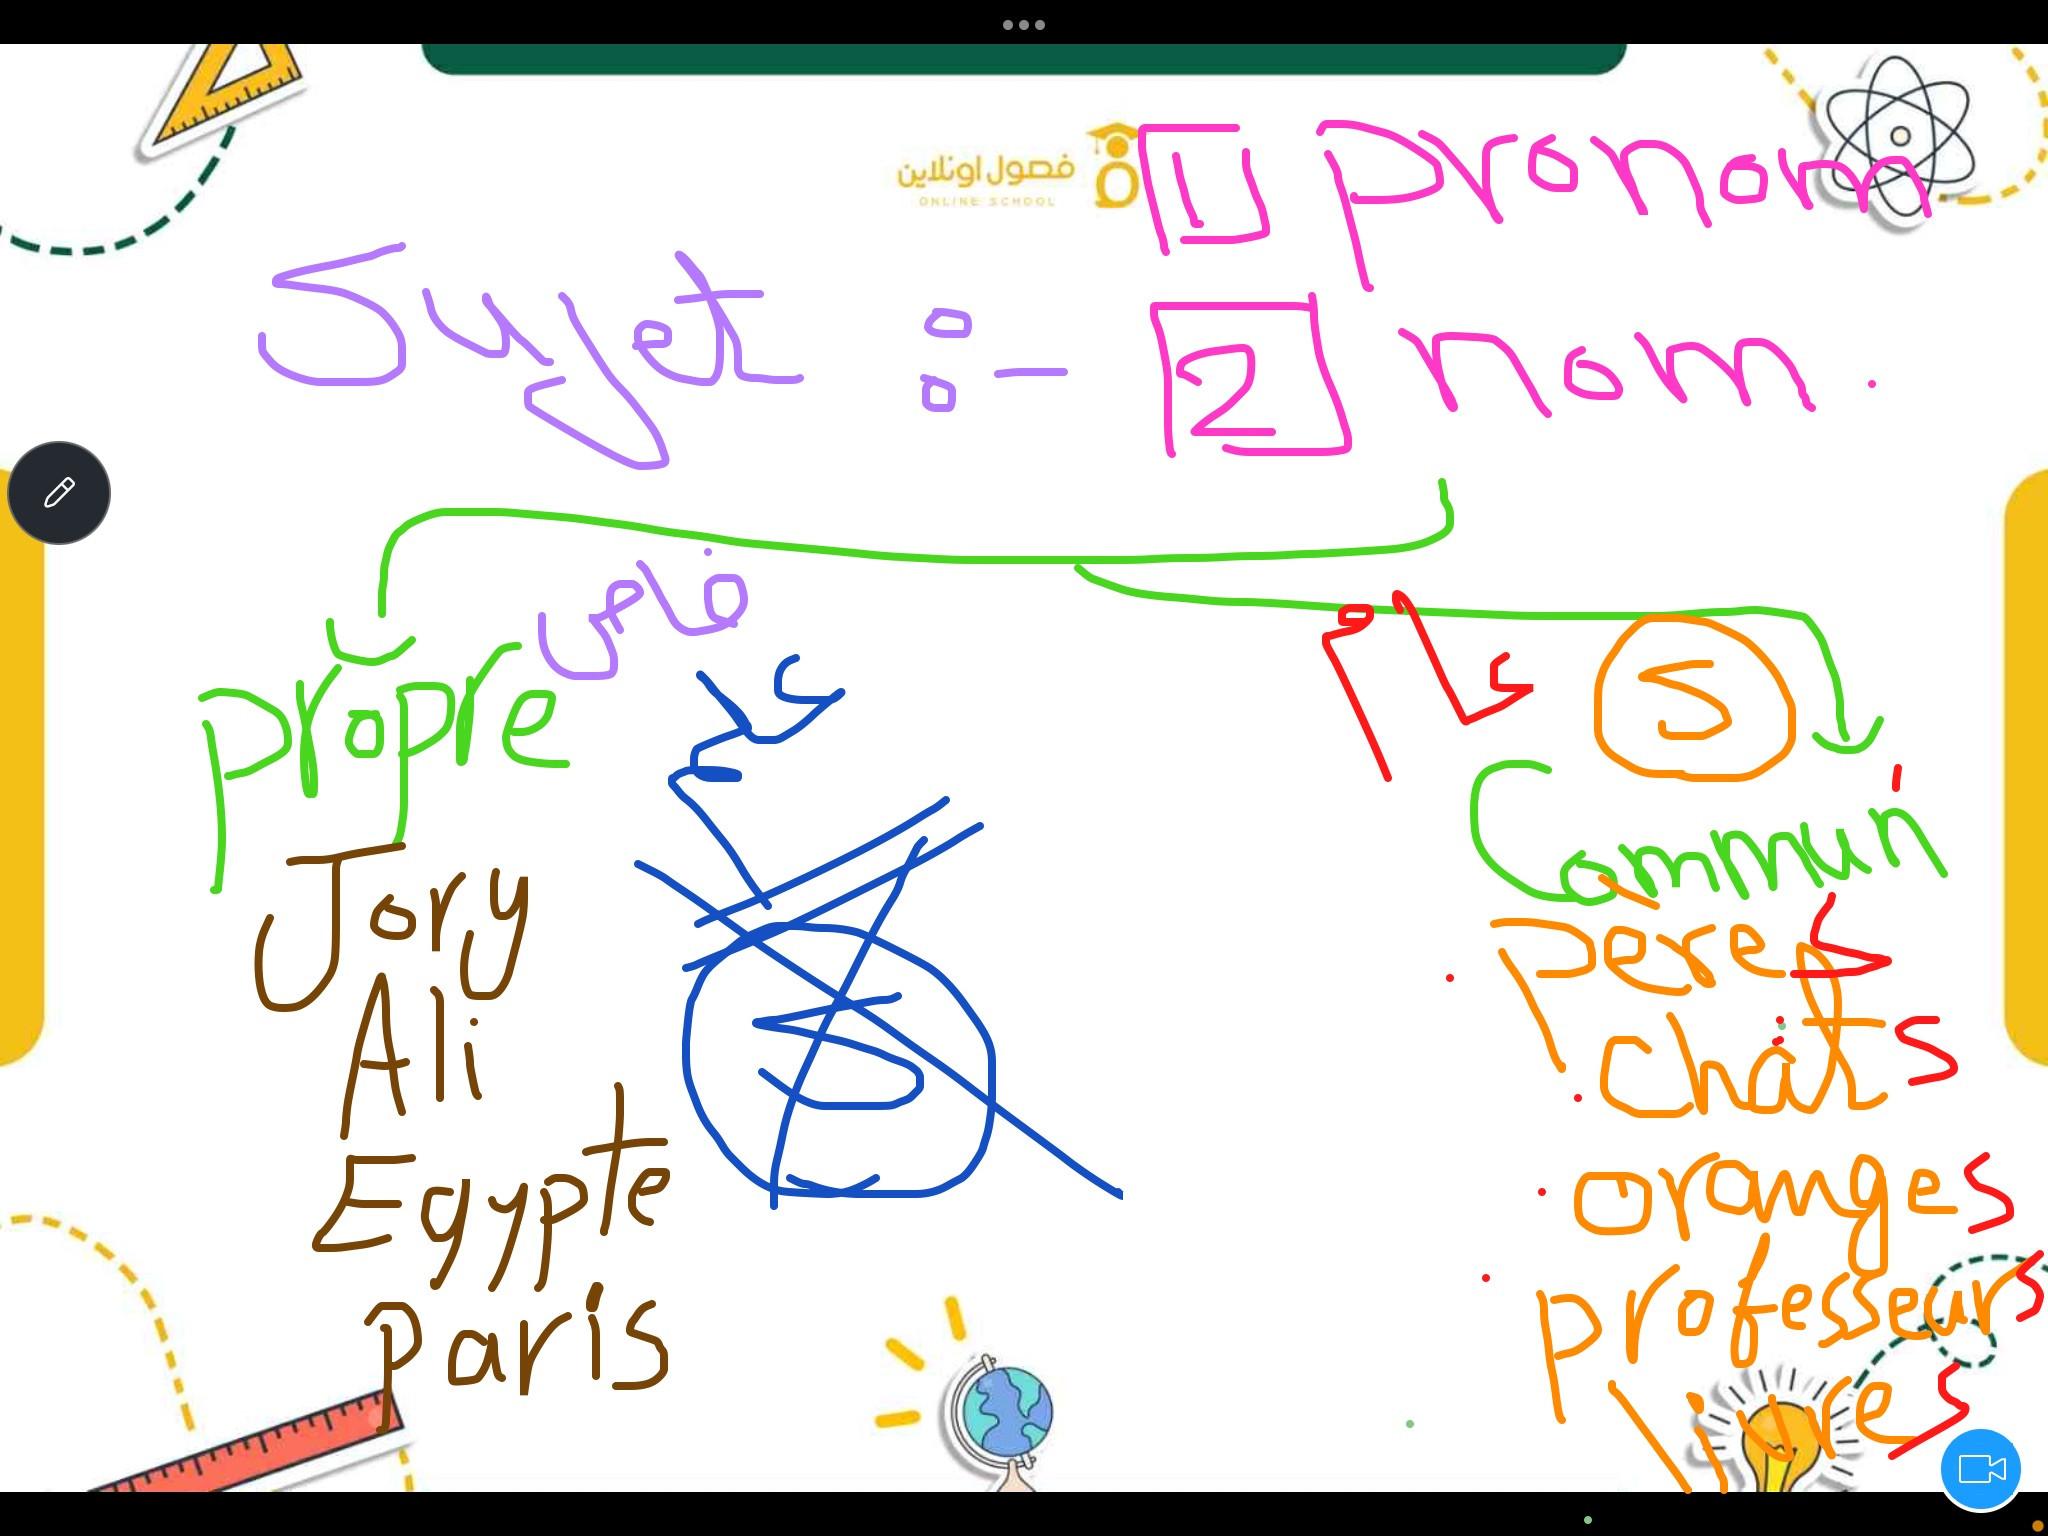 فصول اونلاين
ONLINE SCHOOL
1 pronom
Sujet :- 2 nom.
propre
S
Commun
Jory
Ali
Egypte
Paris
S
peres
chats
oranges
professeurs
livres